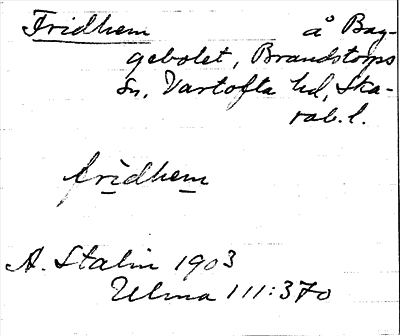 Fridhem å Bag-
gebolet, Brandstorps
sn, Vartofta hd, Ska-
rab. l.
fridhem
A. Stalin 1903
Ulma 111:370